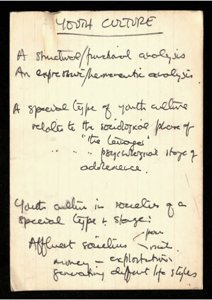 YOUTH CULTURE
A structural/functional analysis
An expressive/hermeneutic analysis.
A special type of youth culture
relates to the sociological phase of
"the teenager"
" " psychological stage of
adolescence.
Youth culture in societies of a
special type & stage:
Affluent societies
money – exploitation
generating different life styles